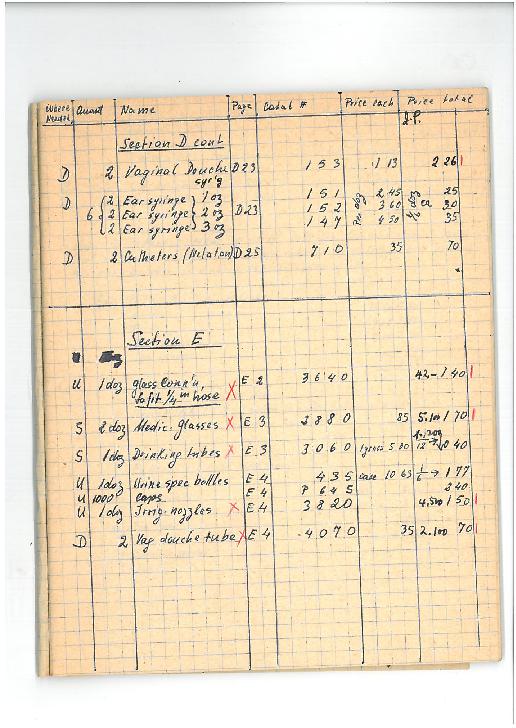 Where Needed Quant Name Page Catal # Price each Price total
Section D cont
D 2 Vaginal Douche D23 153 113 226
syr'g
D 2 Ear syringe 1 oz 151 2 45 25
6 2 Ear syringe 2 oz D23 152 3 60 ea 30
2 Ear syringe 3 oz 147 4 50 35
D 2 Catheters (Nelaton) D25 710 35 70
Section E
U 1 doz glass Conn'n E 2 3640 42 - 1 40
to fit 1/4 in hose
S 2 doz Medic. glasses X E 3 2880 85 5.100 1 70
S 1 doz Drinking tubes X E 3 3060 1 gross 5 80 12 → 040
U 1 doz Urine spec bottles E4 435 case 10 63 1/6 → 177
U 1000 caps E4 P 645 240
U 1 doz Irrig. nozzles X E4 3820 4.500 1 50
D 2 Vag douche tube X E 4 4070 35 2.100 70